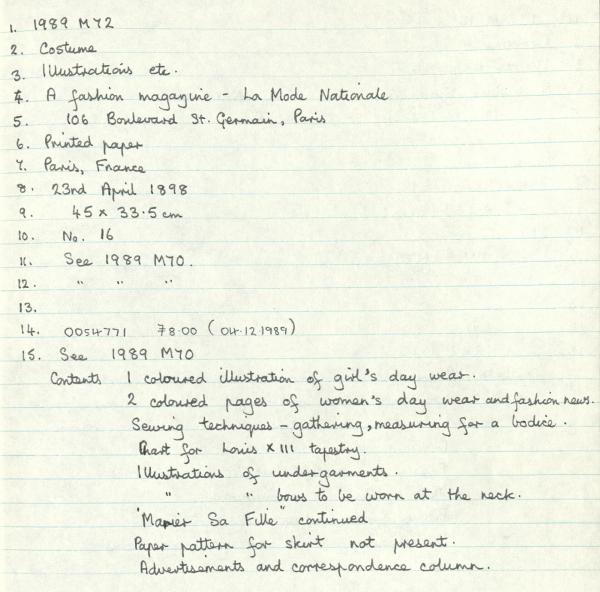 1. 1989 M72
2. Costume
3. Illustrations etc.
4. A fashion magazine - La Mode Nationale
5. 106 Boulevard St. Germain, Paris
6. Printed paper
7. Paris, France
8. 23rd April 1898
9. 45 x 33.5 cm
10. No. 16
11. See 1989 M70.
12. " " "
13.
14. 0054771 78.00 (04.12.1989)
15. See 1989 M70
Contents 1 coloured illustration of girl's day wear.
2 coloured pages of women's day wear and fashion news.
Sewing techniques - gathering, measuring for a bodice.
Chart for Louis XIII tapestry.
Illustrations of undergarments.
" " bows to be worn at the neck.
"Marier Sa Fille" continued
Paper pattern for skirt not present.
Advertisements and correspondence column.